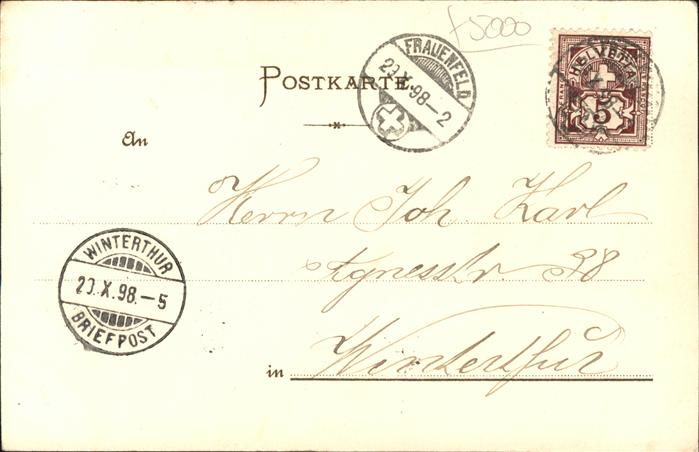 f 5000
HELVETIA
5
FRAUENFELD
20.X.98.–2
POSTKARTE
An
Herrn Joh. Karl
Agnesstr. 38
WINTERTHUR
20.X.98.–5
BRIEFPOST
in Winterthur